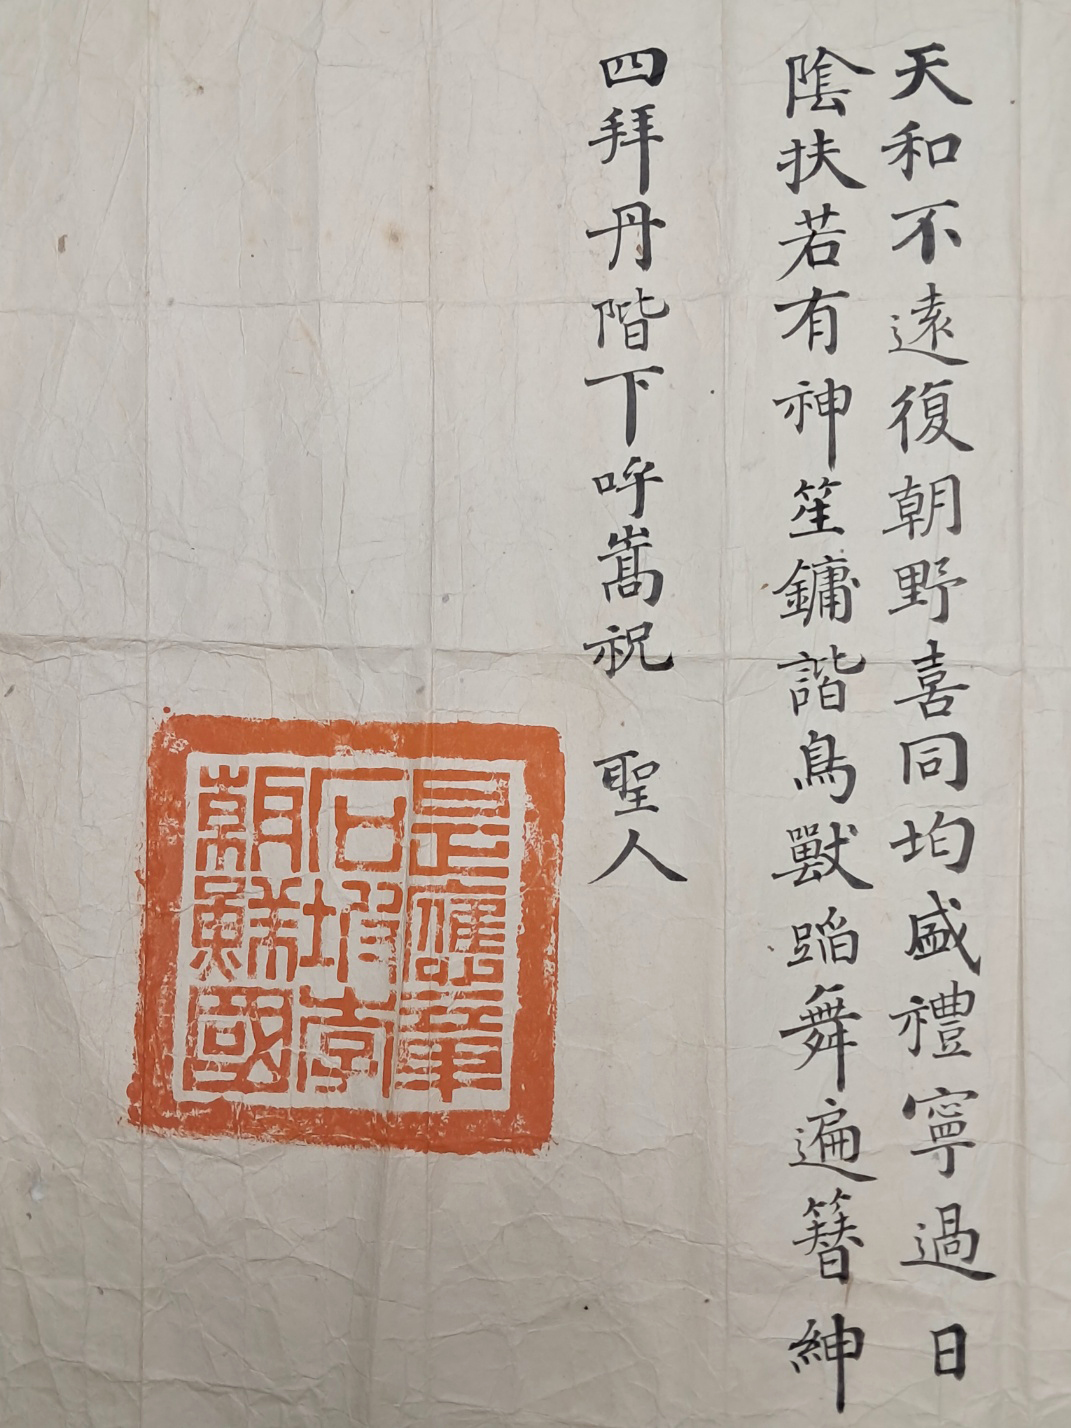 天和不遠復朝野喜同均盛禮寧過日
陰扶若有神笙鏞諧鳥獸蹈舞遍簪紳
四拜丹階下呼嵩祝 聖人
應章
石
朝鮮國